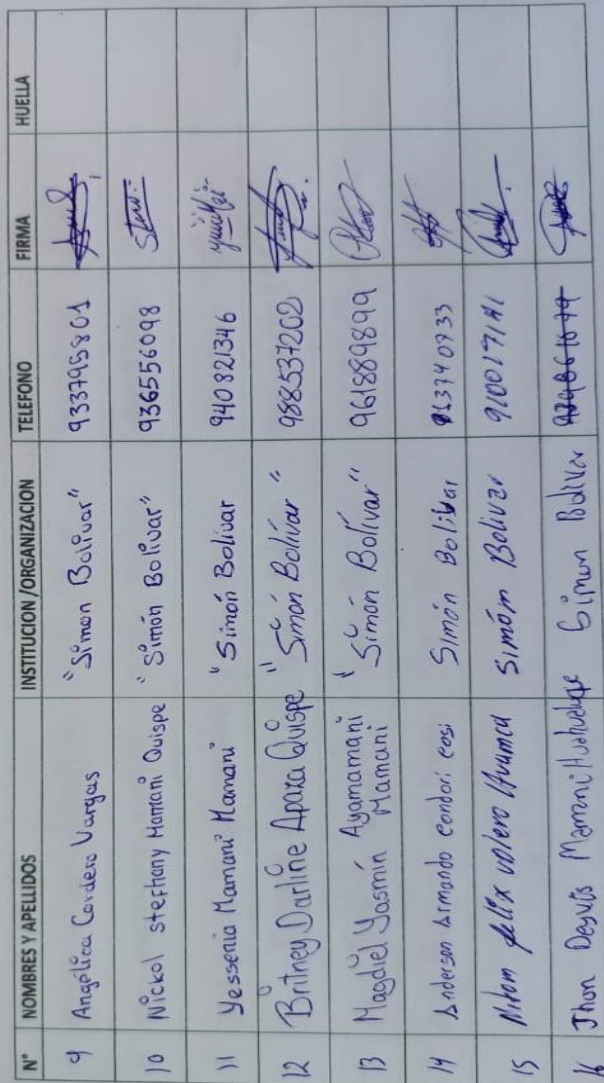 N° NOMBRES Y APELLIDOS INSTITUCION /ORGANIZACION TELEFONO FIRMA HUELLA
9 Angélica Cordero Vargas "Simon Bolívar" 933795801
10 Nickol stefhany Mamani Quispe "Simón Bolívar" 936556098
11 Yessenia Mamani Mamani "Simón Bolivar 940821346
12 Britney Darline Apaza Quispe "Simón Bolívar" 988537202
13 Magdiel Yasmín Ayamamani Mamani "Simón Bolívar" 961889899
14 Anderson Armando condori cosi Simón Bolibar
15 felix valero Simóm Bolivar 910017141
16 Jhon Deyvis Mamani Simon Bolivar